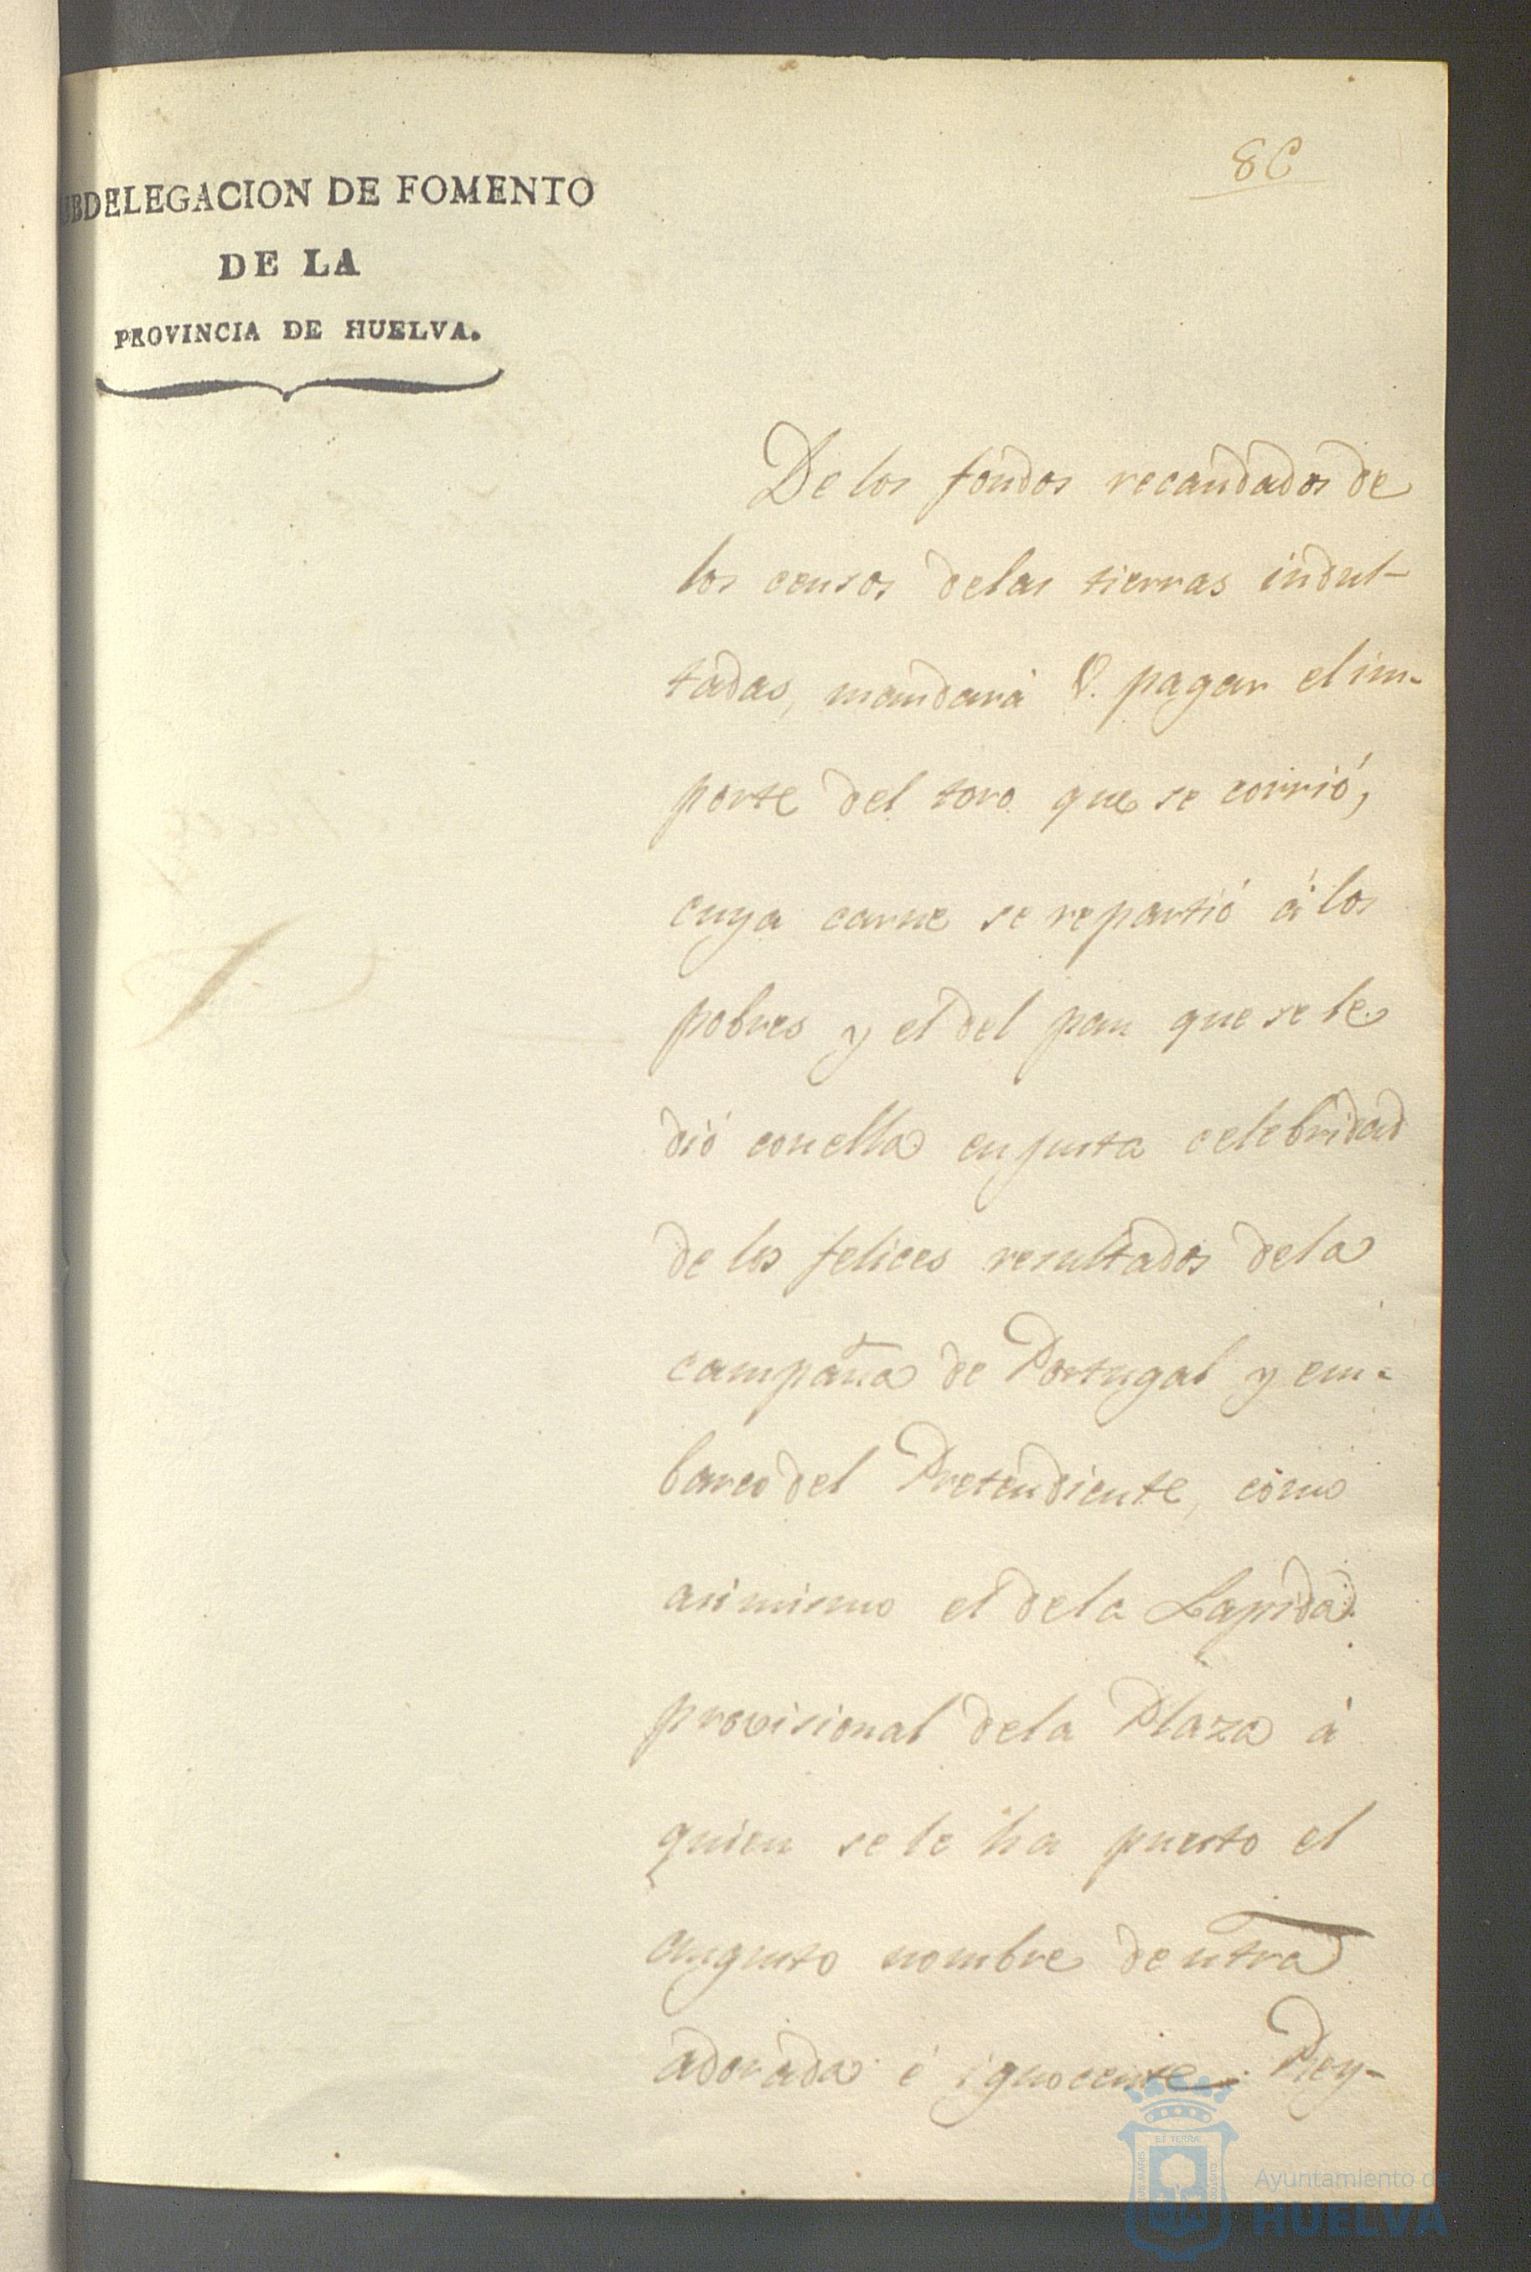 80
UBDELEGACION DE FOMENTO
DE LA
PROVINCIA DE HUELVA.
De los fondos recaudados de
los censos delas tierras indul-
tadas, mandará V. pagar el im-
porte del toro que se corrió,
cuya carne se repartió á los
pobres y el del pan que se le
dió conella en justa celebridad
de los felices resultados dela
campaña de Portugal y em-
barco del Pretendiente, como
asimismo el dela Lapida
provisional dela Plaza á
quien se le ha puesto el
augusto nombre de ntra
adorada é ignocente Rey-
ET TERRAE
Ayuntamiento de
HUELVA